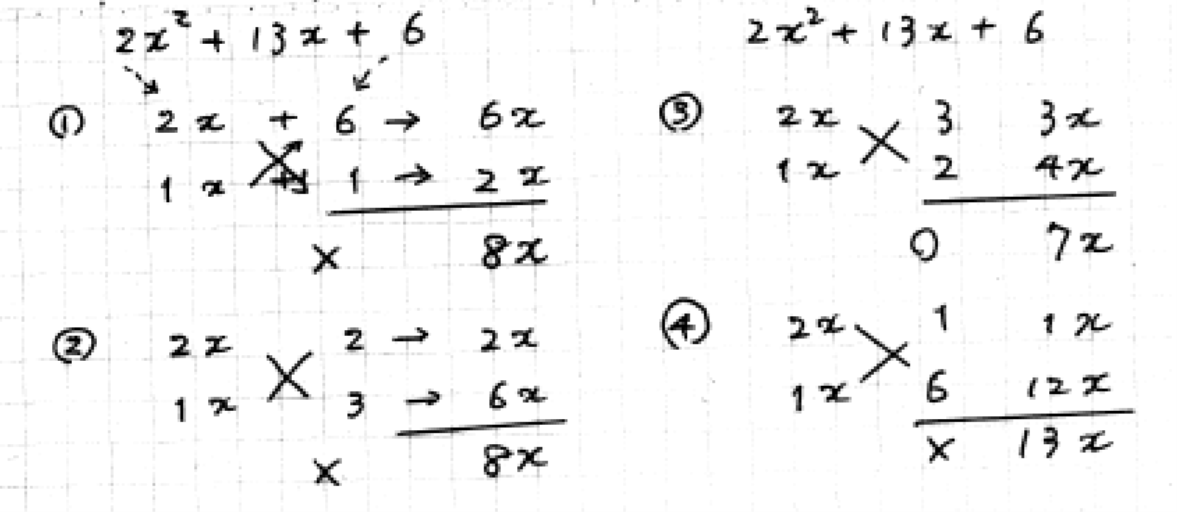 2x² + 13x + 6
① 2x + 6 → 6x
1x + 1 → 2x
× 8x
② 2x 2 → 2x
1x 3 → 6x
× 8x
2x² + 13x + 6
③ 2x 3 3x
1x 2 4x
0 7x
④ 2x 1 1x
1x 6 12x
× 13x